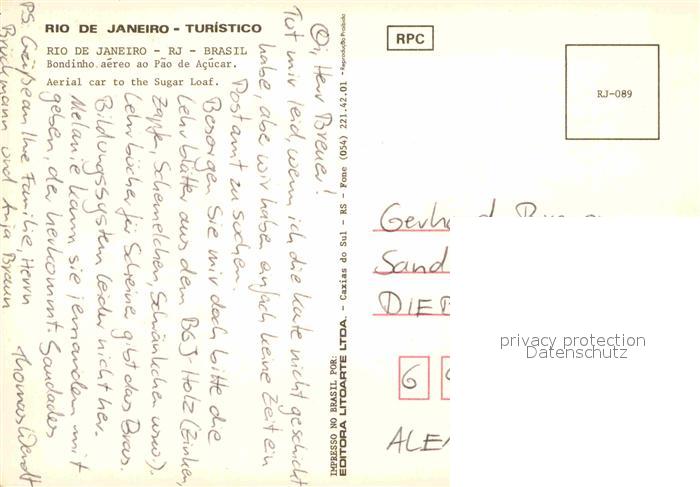 RIO DE JANEIRO - TURÍSTICO
RIO DE JANEIRO - RJ - BRASIL
Bondinho aéreo ao Pão de Açúcar.
Aerial car to the Sugar Loaf.
Oi, Herr Breuer!
Tut mir leid, wenn ich die Karte nicht geschickt
habe, aber wir haben einfach keine Zeit ein
Postamt zu suchen.
Besorgen Sie mir doch bitte die
Lehrblätter aus dem BGJ Holz (Zinken,
Zapfen, Schemelchen, Schränkchen usw.).
Lehrbücher für Schreiner gibt das Bras.
Bildungssystem leider nicht her.
Melanie kann sie jemandem mit
geben, der herkommt. Saudades
Thomas Wendt
PS: Grüße an Ihre Familie, Herrn
Brockmann und Anja Braun
IMPRESSO NO BRASIL POR:
EDITORA LITOARTE LTDA. - Caxias do Sul - RS - Fone (054) 221.42.01 - Reprodução Proibida
RPC
RJ-089
Gerhard
Sand
DIEB
6
ALE
privacy protection
Datenschutz